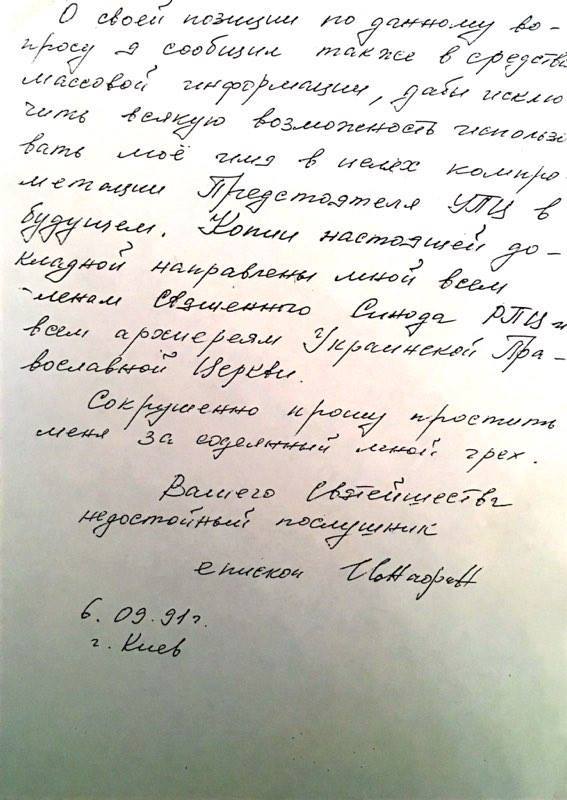 О своей позиции по данному во-
просу я сообщил также в средства
массовой информации, дабы исклю
чить всякую возможность использо
вать моё имя в целях компро-
метации Предстоятеля УПЦ в
будущем. Копии настоящей до-
кладной направлены мной всем
членам Священного Синода РПЦ и
всем архиереям Украинской Пра-
вославной Церкви.
Сокрушенно прошу простить
меня за содеянный мной грех.
Вашего Святейшества
недостойный послушник
епископ
6. 09. 91г.
г. Киев